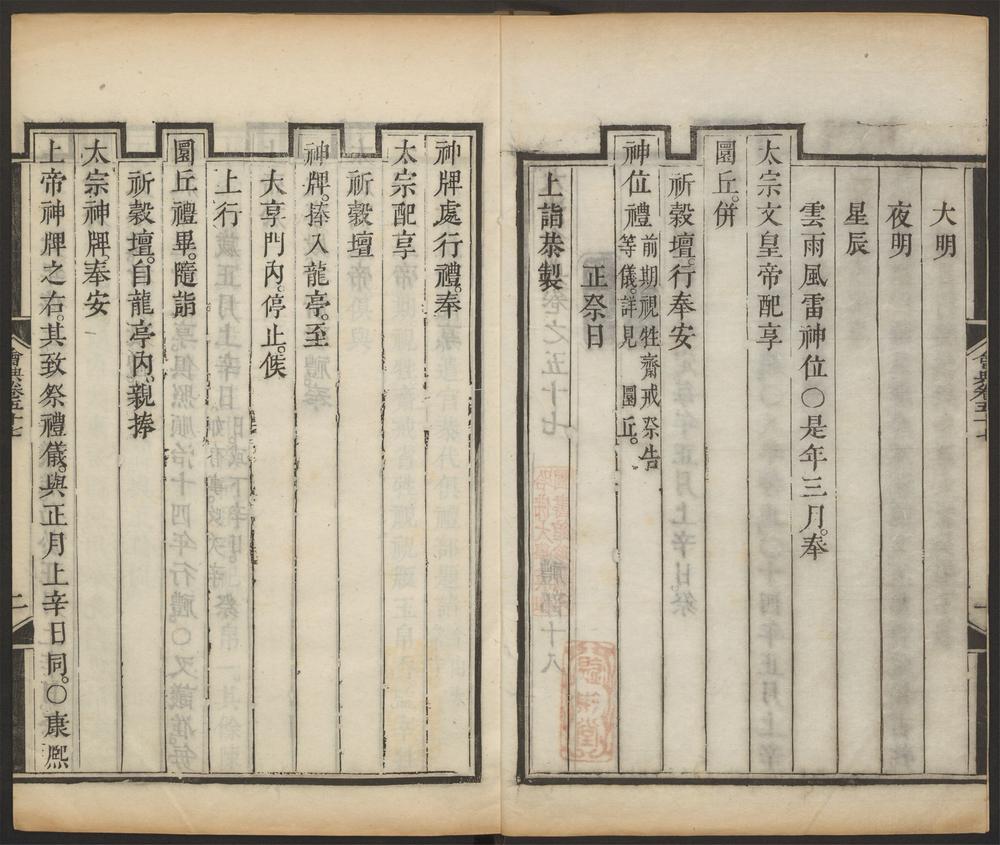 大明
夜明
星辰
雲雨風雷神位○是年三月。奉
太宗文皇帝配享
圜丘。併
祈穀壇。行奉安
神位禮前期視牲齋戒祭告
等儀。詳見 圜丘。
正祭日
上詣恭製
神牌處行禮。奉
太宗配享
祈穀壇
神牌。捧入龍亭。至
大享門內。停止。候
上行
圜丘禮畢。隨詣
祈穀壇。自龍亭內。親捧
太宗神牌。奉安
上帝神牌之右。其致祭禮儀。與正月上辛日同。○康熙
會典卷五十七
二